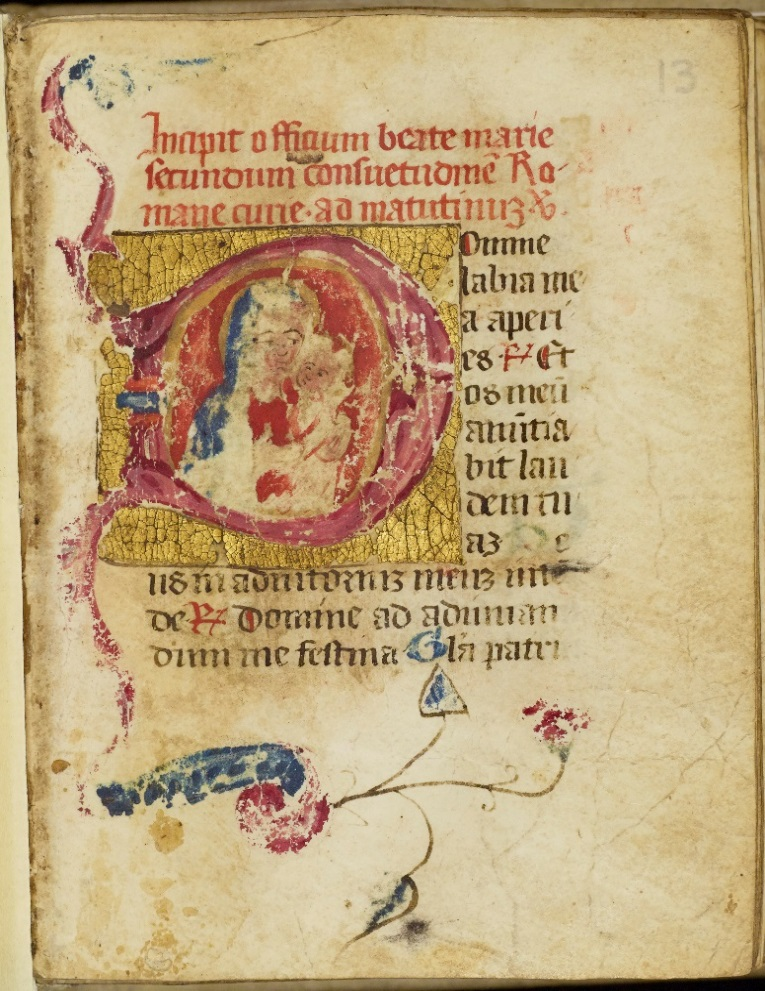 13
Incipit officium beate marie
secundum consuetudinē Ro-
mane curie · ad matutinuꝫ ℣.
Domine
labia me
a aperi
es ℟ Et
os meū
anūtia
bit lau
dem tu
aꝫ De
us in adiutoriuꝫ meuꝫ inte
de ℟ Domine ad adiuuan
dum me festina Glā patri